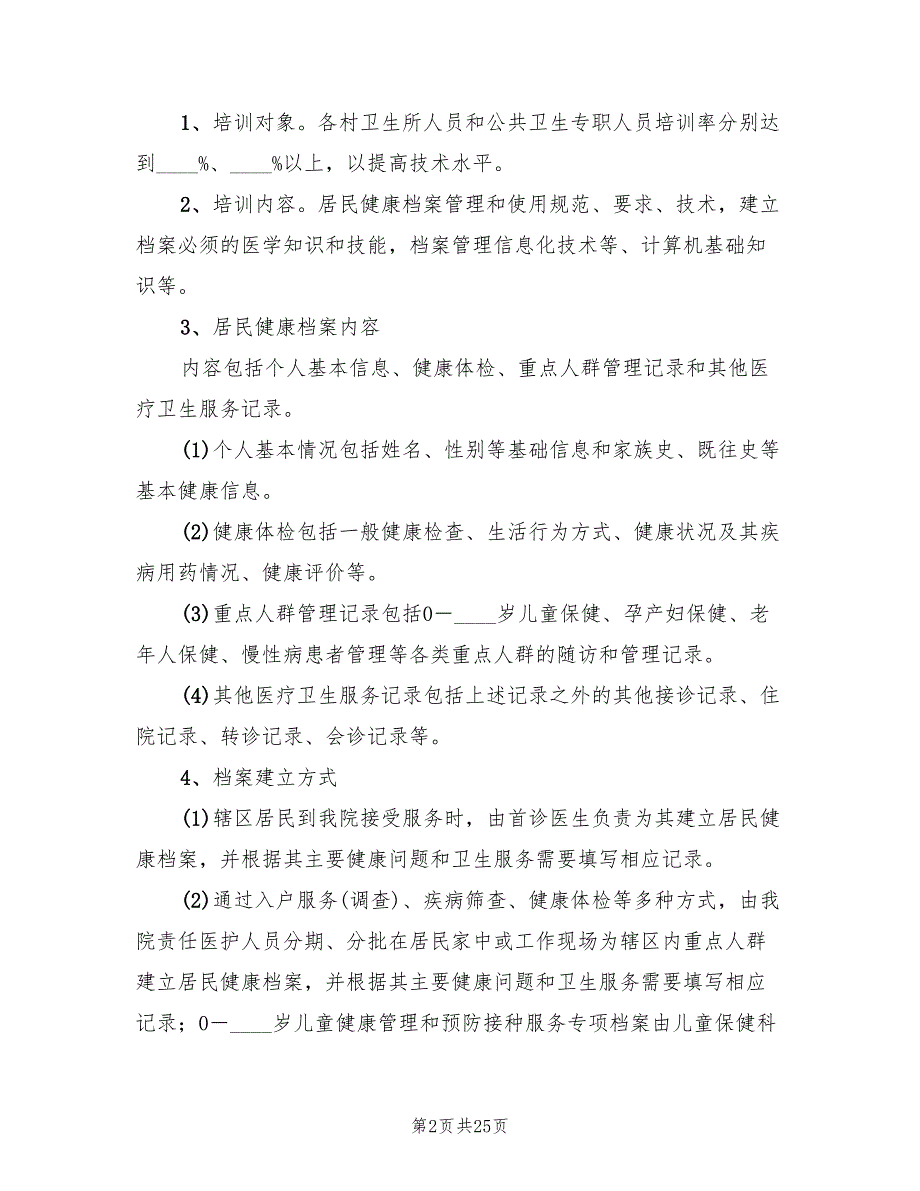 1、培训对象。各村卫生所人员和公共卫生专职人员培训率分别达
到____%、____%以上，以提高技术水平。
2、培训内容。居民健康档案管理和使用规范、要求、技术，建立
档案必须的医学知识和技能，档案管理信息化技术等、计算机基础知
识等。
3、居民健康档案内容
内容包括个人基本信息、健康体检、重点人群管理记录和其他医
疗卫生服务记录。
(1)个人基本情况包括姓名、性别等基础信息和家族史、既往史等
基本健康信息。
(2)健康体检包括一般健康检查、生活行为方式、健康状况及其疾
病用药情况、健康评价等。
(3)重点人群管理记录包括0－____岁儿童保健、孕产妇保健、老
年人保健、慢性病患者管理等各类重点人群的随访和管理记录。
(4)其他医疗卫生服务记录包括上述记录之外的其他接诊记录、住
院记录、转诊记录、会诊记录等。
4、档案建立方式
(1)辖区居民到我院接受服务时，由首诊医生负责为其建立居民健
康档案，并根据其主要健康问题和卫生服务需要填写相应记录。
(2)通过入户服务(调查)、疾病筛查、健康体检等多种方式，由我
院责任医护人员分期、分批在居民家中或工作现场为辖区内重点人群
建立居民健康档案，并根据其主要健康问题和卫生服务需要填写相应
记录；0－____岁儿童健康管理和预防接种服务专项档案由儿童保健科
第2页共25页